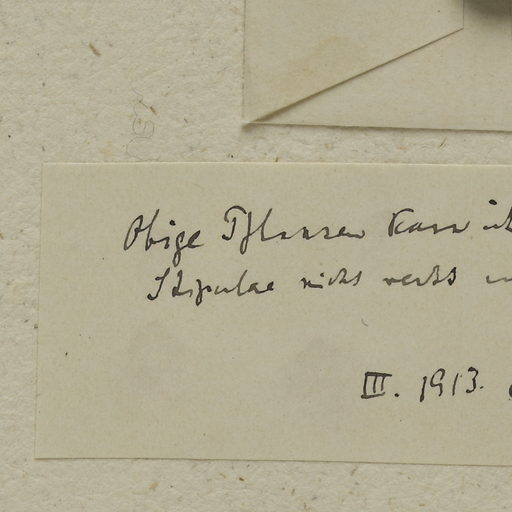 Obige Pflanzen kann ich
Stipulae nicht recht
III. 1913.